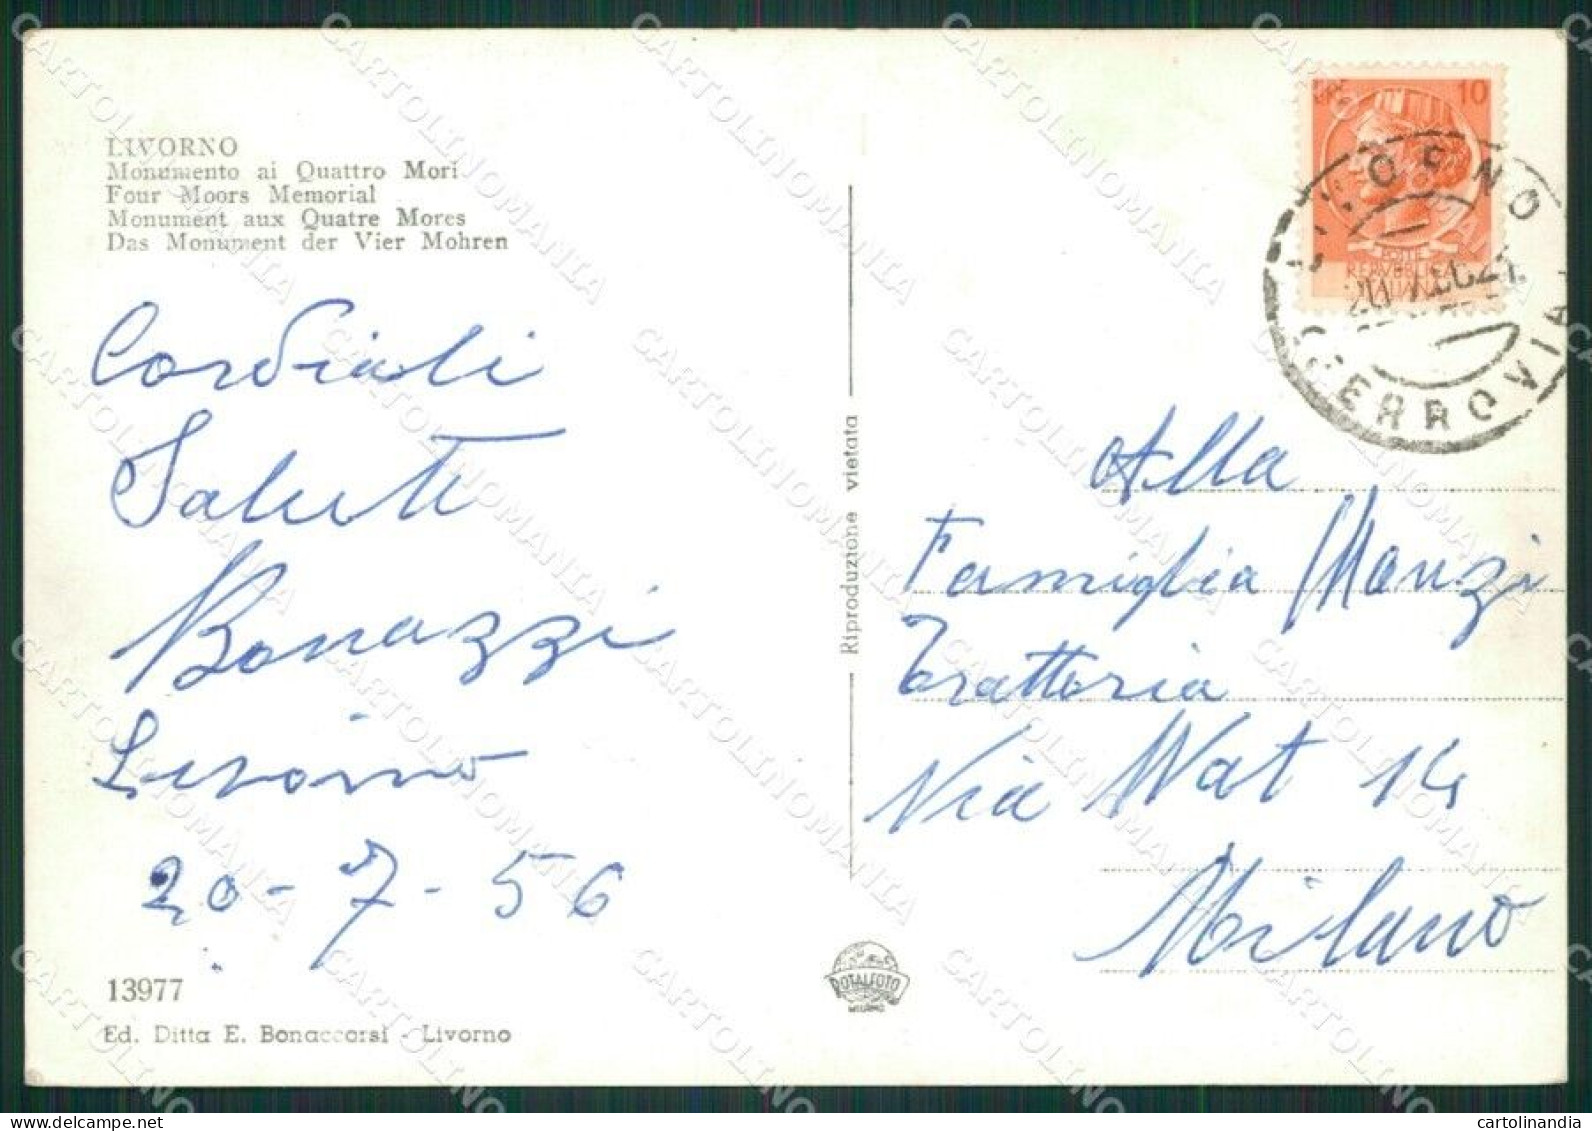 LIVORNO
Monumento ai Quattro Mori
Four Moors Memorial
Monument aux Quatre Mores
Das Monument der Vier Mohren
Cordiali
Saluti
Bonazzi
Livorno
20-7-56
13977
Ed. Ditta E. Bonaccorsi - Livorno
Riproduzione vietata
ROTALFOTO
MILANO
10
POSTE
REPVBBLICA
ITALIANA
LIVORNO
FERROVIA
Alla
Famiglia Manzi
Trattoria
Via Wat 14
Milano
CARTOLINOMANIA
cartolinandia